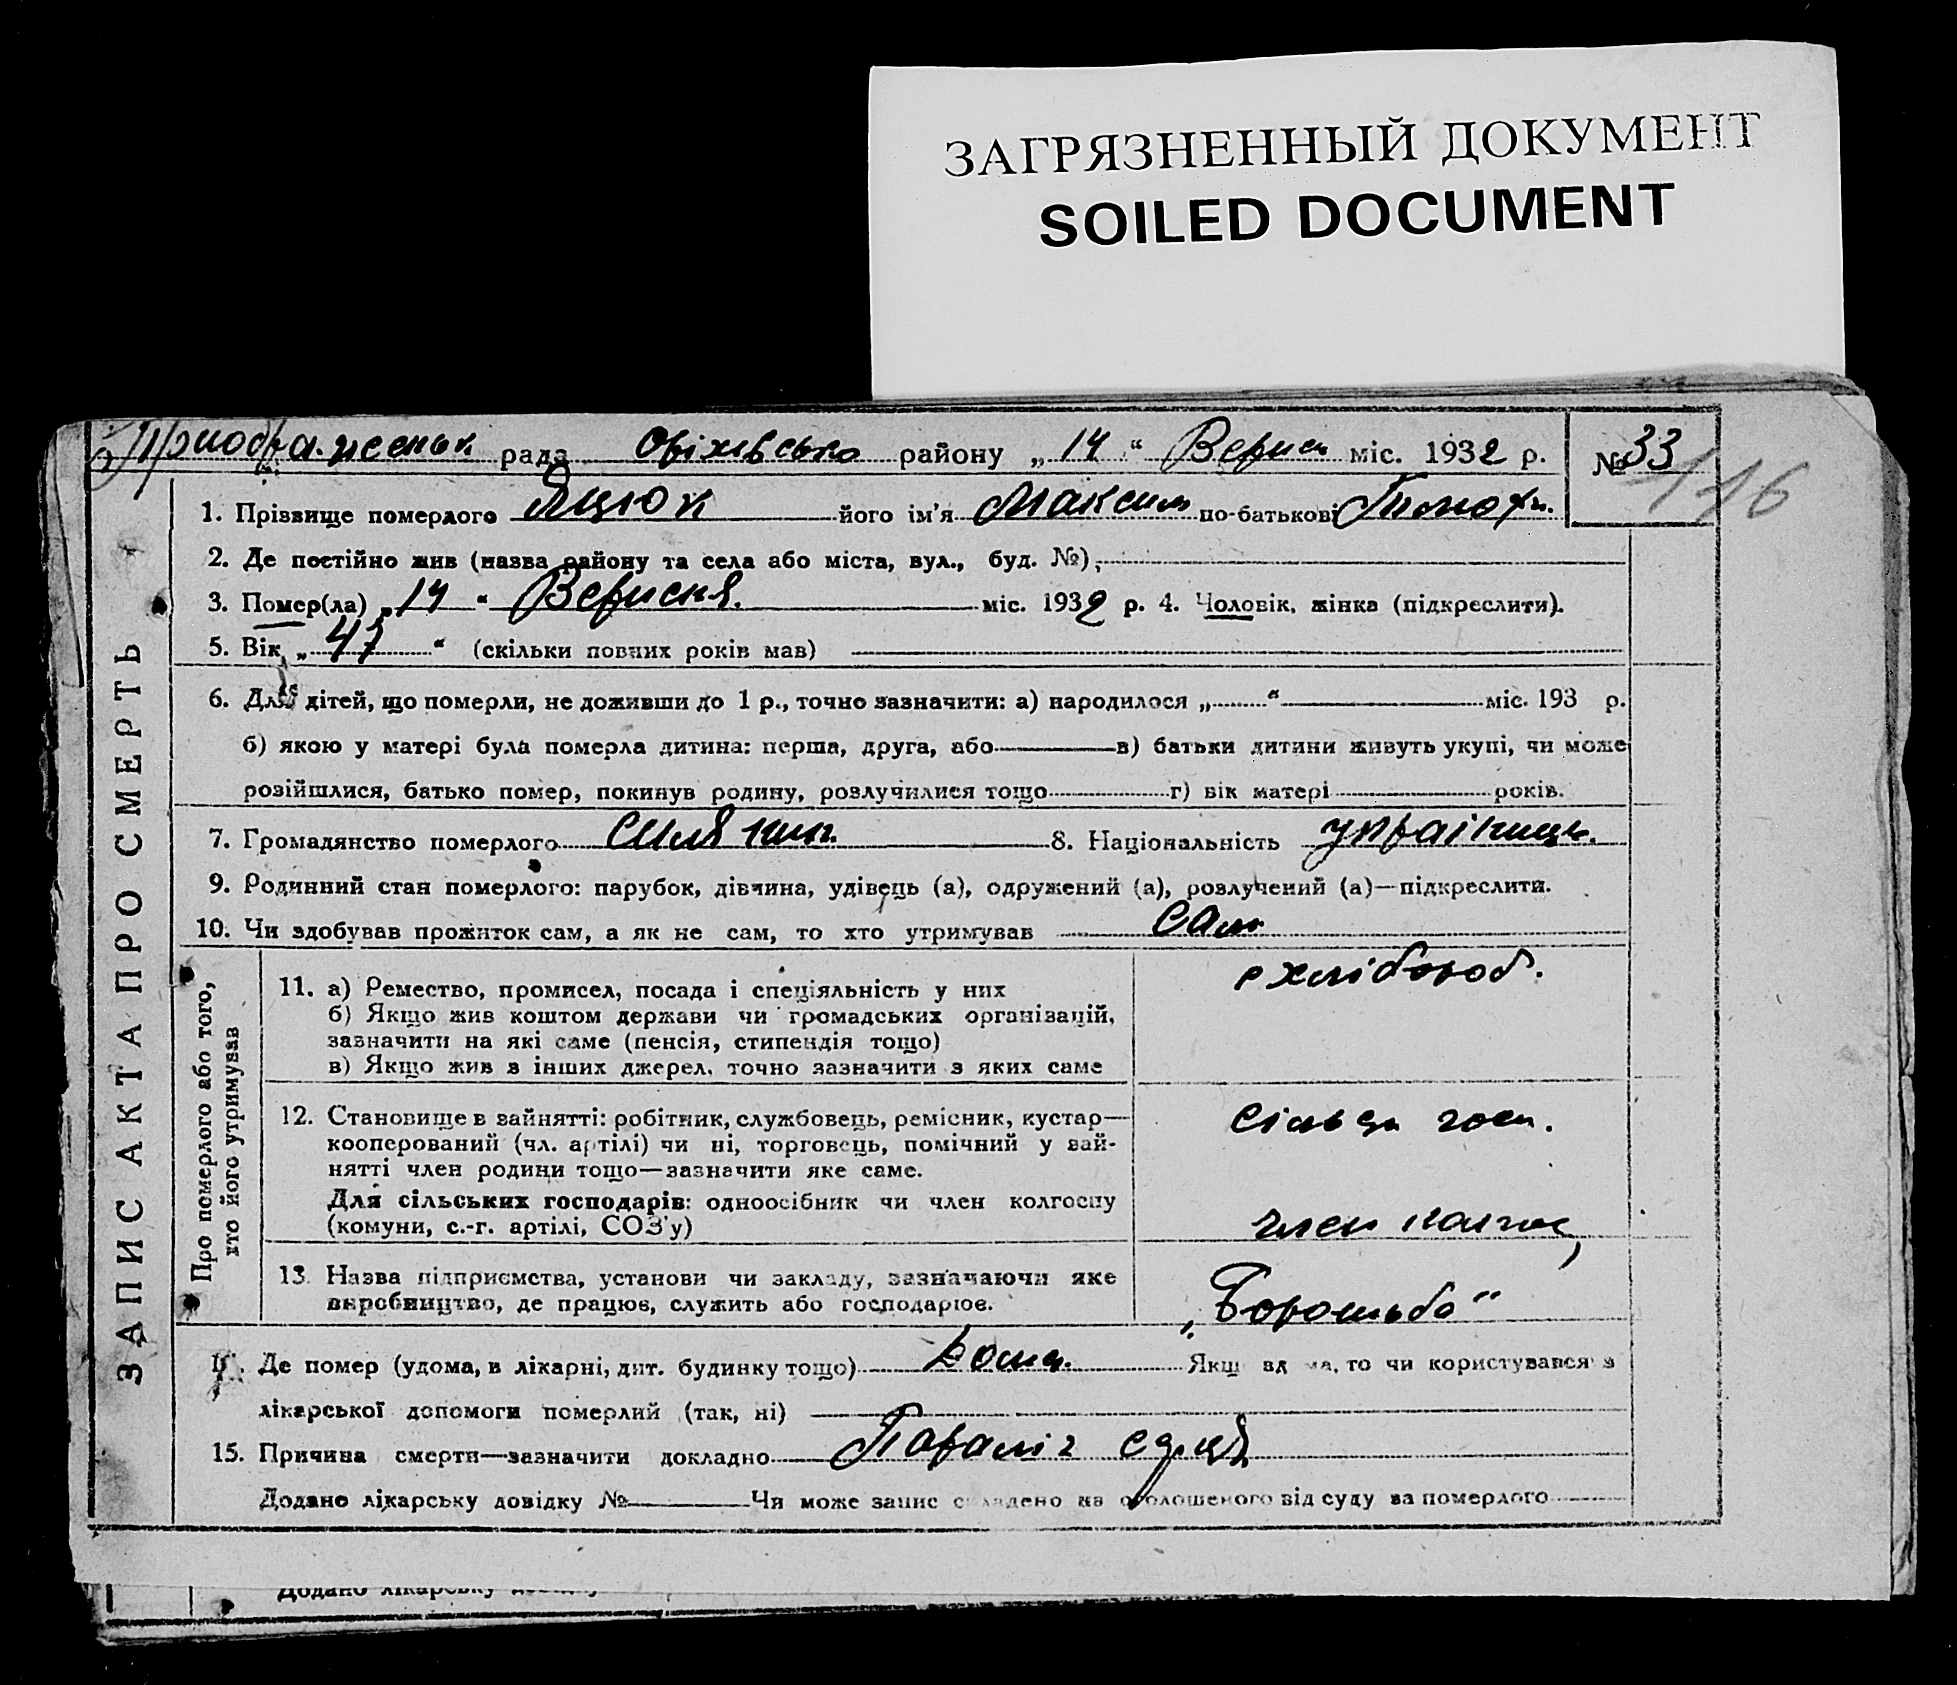 ЗАГРЯЗНЕННЫЙ ДОКУМЕНТ
SOILED DOCUMENT
рада Оріхівська району „14“ Верисн міс. 1932 р. № 33
116
1. Прізвище померлого Яцюк його ім'я Максим по-батькові Тимох.
2. Де постійно жив (назва району та села або міста, вул., буд. №)
3. Помер(ла) „14“ Вересня. міс. 1932 р. 4. Чоловік, жінка (підкреслити).
5. Вік „47“ (скільки повних років мав)
6. Для дітей, що померли, не доживши до 1 р., точно зазначити: а) народилося „ “ міс. 193 р.
б) якою у матері була померла дитина: перша, друга, або в) батьки дитини живуть укупі, чи може
розійшлися, батько помер, покинув родину, розлучилися тощо г) вік матері років.
7. Громадянство померлого 8. Національність українець.
9. Родинний стан померлого: парубок, дівчина, удівець (а), одружений (а), розлучений (а)—підкреслити.
10. Чи здобував прожиток сам, а як не сам, то хто утримував сам
ЗАПИС АКТА ПРО СМЕРТЬ
Про померлого або того, хто його утримував
11. а) Ремество, промисел, посада і спеціяльність у них хлібороб.
б) Якщо жив коштом держави чи громадських організацій,
зазначити на які саме (пенсія, стипендія тощо)
в) Якщо жив з інших джерел, точно зазначити з яких саме
12. Становище в зайнятті: робітник, службовець, ремісник, кустар— госп.
кооперований (чл. артілі) чи ні, торговець, помічний у зай-
нятті член родини тощо—зазначити яке саме.
Для сільських господарів: одноосібник чи член колгоспу
(комуни, с.-г. артілі, СОЗ'у) член колгос
13. Назва підприємства, установи чи закладу, зазначаючи яке
виробництво, де працює, служить або господарює. „Боротьба“
Де помер (удома, в лікарні, дит. будинку тощо) Дома. Якщо вдома, то чи користувався з
лікарської допомоги померлий (так, ні)
15. Причина смерти—зазначити докладно Параліч серця
Додано лікарську довідку № Чи може запис складено на оголошеного від суду за померлого
Додано лікарську